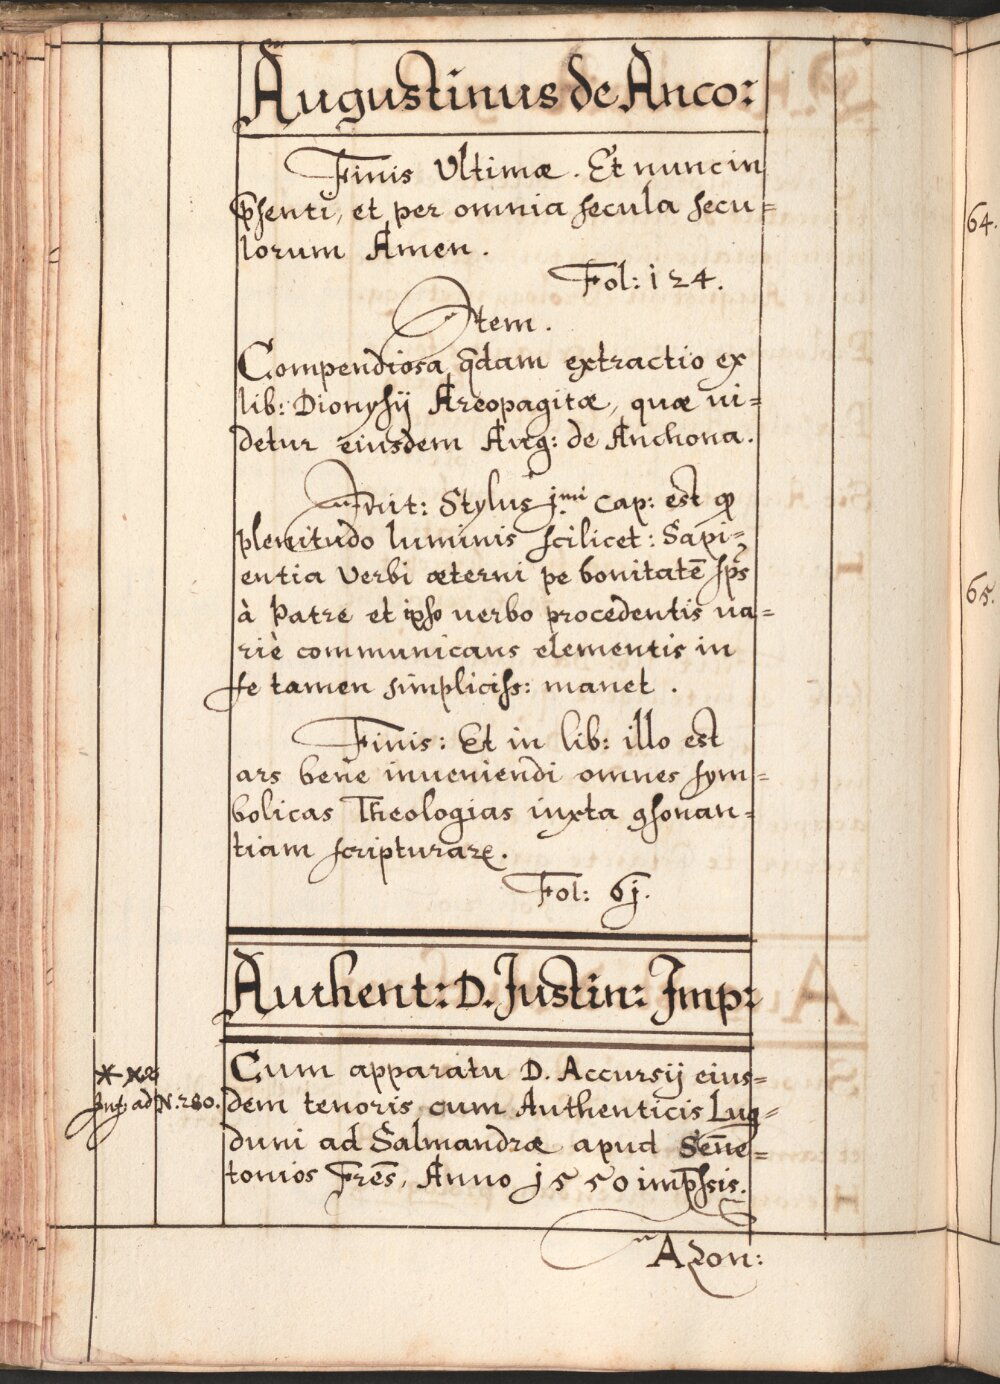 Augustinus de Anco:
Finis Ultimæ. Et nunc in
p̄senti, et per omnia secula secu=
lorum Amen.
Fol: 124.
Item.
Compendiosa q̄dam extractio ex
lib: Dionysij Areopagitæ, quæ ui=
detur eiusdem Aug: de Anchona.
Init: Stylus j.mi cap: est qͻ
plenitudo luminis scilicet: Sapi=
entia Verbi æterni pe bonitatē sp̄s
à Patre et ipso uerbo procedentis ua=
riè communicans elementis in
se tamen simpliciss: manet.
Finis: Et in lib: illo est
ars bene inueniendi omnes sym=
bolicas Theologias iuxta ꝯsonan=
tiam scripturarꝝ.
Fol: 6j.
Authent: D. Justin: Imp:
Cum apparatu D. Accursij eius=
dem tenoris cum Authenticis Lug=
duni ad Salmandræ apud Señe=
tonios Frēs, Anno j550 imp̄sis.
Inf: ad N. 280.
Azon:
64.
65.